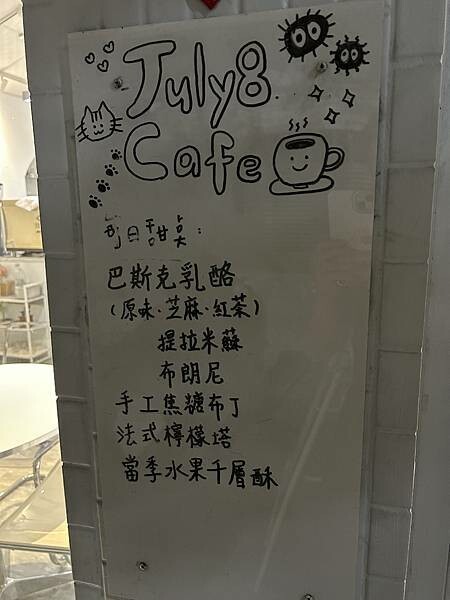 July8
Cafe
每日甜點：
巴斯克乳酪
(原味·芝麻·紅茶)
提拉米蘇
布朗尼
手工焦糖布丁
法式檸檬塔
當季水果千層酥